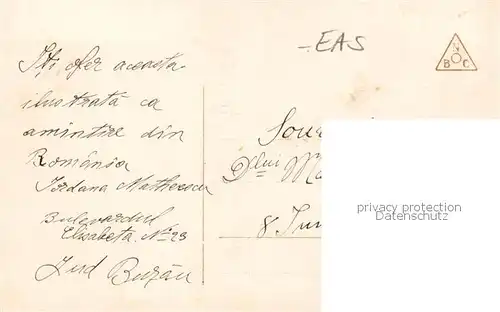 Iți ofer aceasta
ilustrată ca
amintire din
România
Iordana Matheescu
Bulevardul
Elisabeta. No 23
Jud Buzău
-EAS
N
B O C
Sou
Dlui
8 Iun
privacy protection
Datenschutz